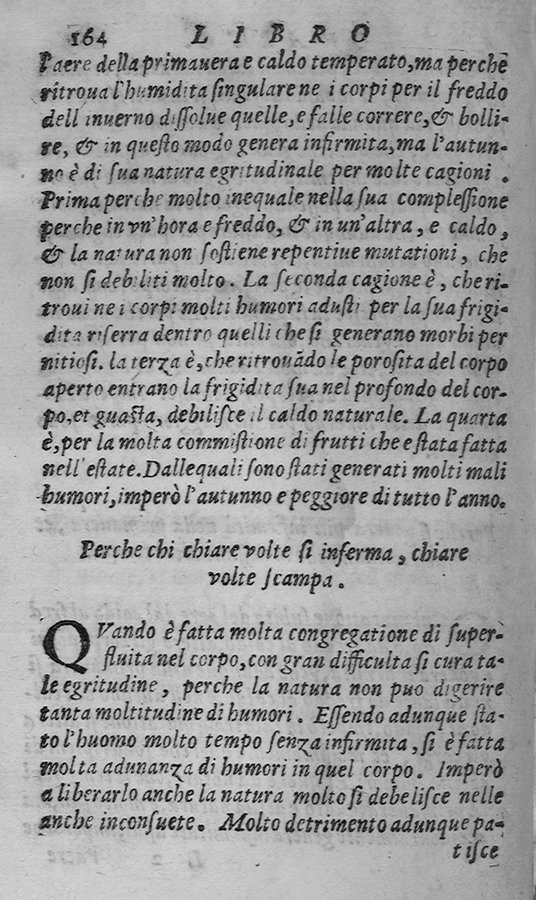 164 LIBRO
l'aere della primauera e caldo temperato, ma perche
ritroua l'humidita singulare ne i corpi per il freddo
dell inuerno dissolue quelle, e falle correre, & bolli-
re, & in questo modo genera infirmita, ma l'autun-
no è di sua natura egritudinale per molte cagioni.
Prima perche molto inequale nella sua complessione
perche in vn'hora e freddo, & in un'altra, e caldo,
& la natura non sostiene repentiue mutationi, che
non si debiliti molto. La seconda cagione è, che ri-
troui ne i corpi molti humori adusti per la sua frigi-
dita riserra dentro quelli che si generano morbi per
nitiosi. la terza è, che ritrouãdo le porosita del corpo
aperto entrano la frigidita sua nel profondo del cor-
po, et guasta, debilisce il caldo naturale. La quarta
è, per la molta commistione di frutti che e stata fatta
nell'estate. Dalle quali sono stati generati molti mali
humori, imperò l'autunno e peggiore di tutto l'anno.
Perche chi chiare volte si inferma, chiare
volte scampa.
QVando è fatta molta congregatione di super-
fluita nel corpo, con gran difficulta si cura ta-
le egritudine, perche la natura non puo digerire
tanta moltitudine di humori. Essendo adunque sta-
to l'huomo molto tempo senza infirmita, si è fatta
molta adunanza di humori in quel corpo. Imperò
a liberarlo anche la natura molto si debelisce nelle
anche inconsuete. Molto detrimento adunque pa-
tisce